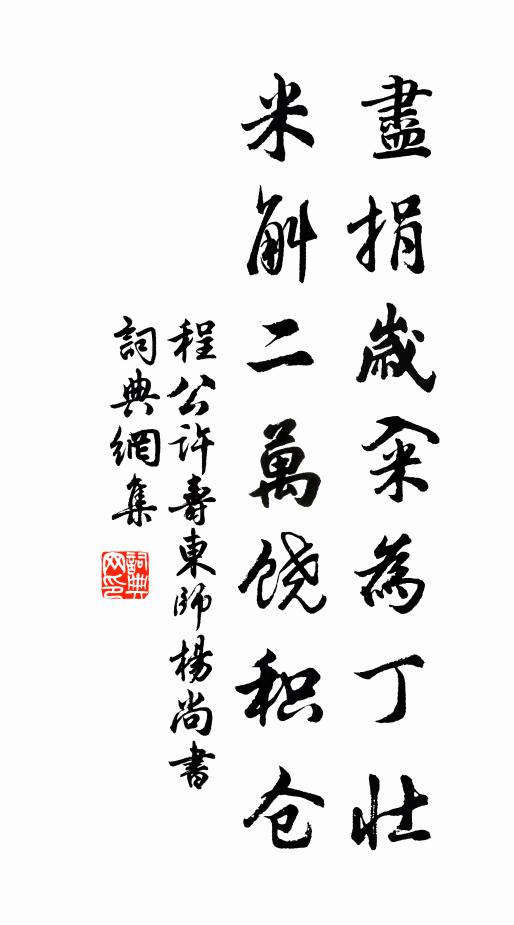 盡捐歲籴為丁壯
米斛二萬饶积仓
程公許壽東師楊尚書
詞典網集
詞典
网印